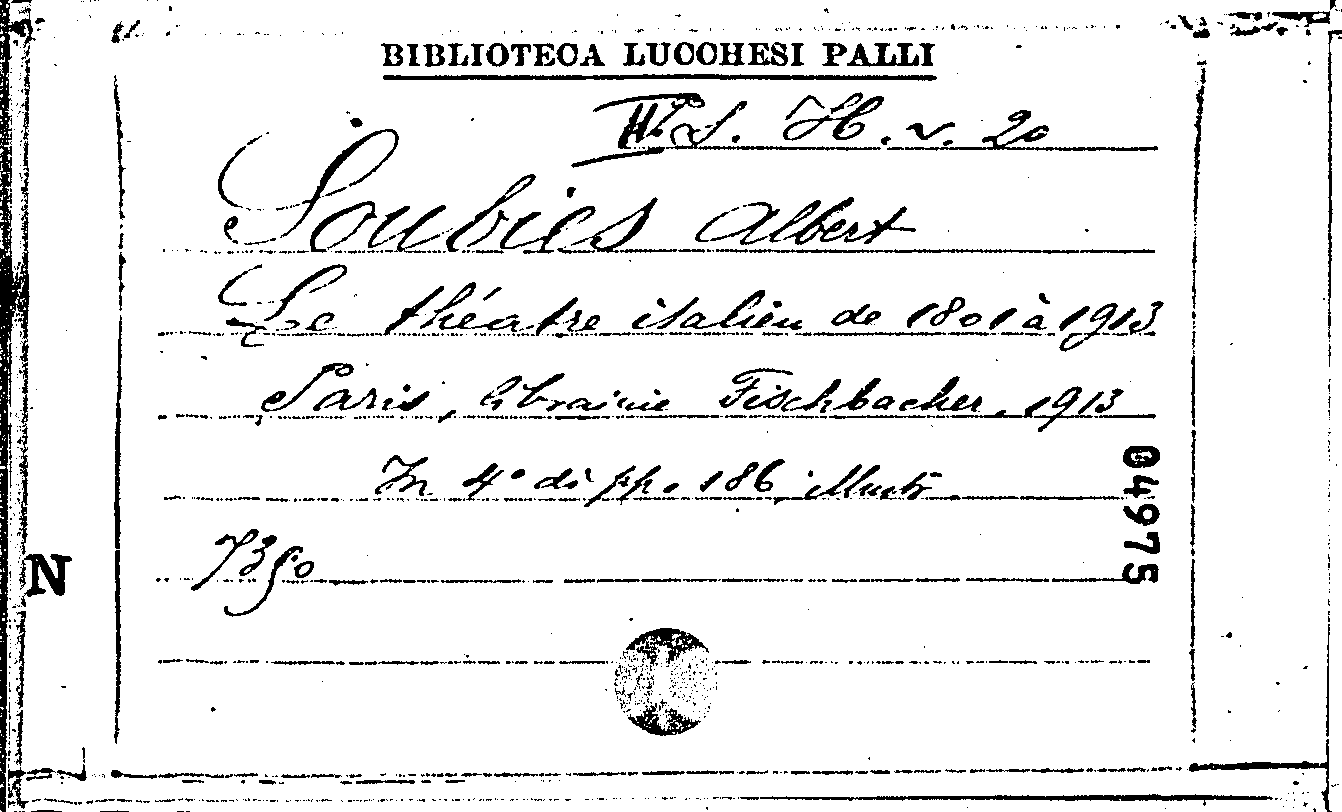 BIBLIOTECA LUCCHESI PALLI
S. H. v. 20
Soubies Albert
Le théatre italien de 1801 à 1913
Paris, librairie Fischbacher, 1913
In 4° di pp. 186, illustr.
04975
7390
N